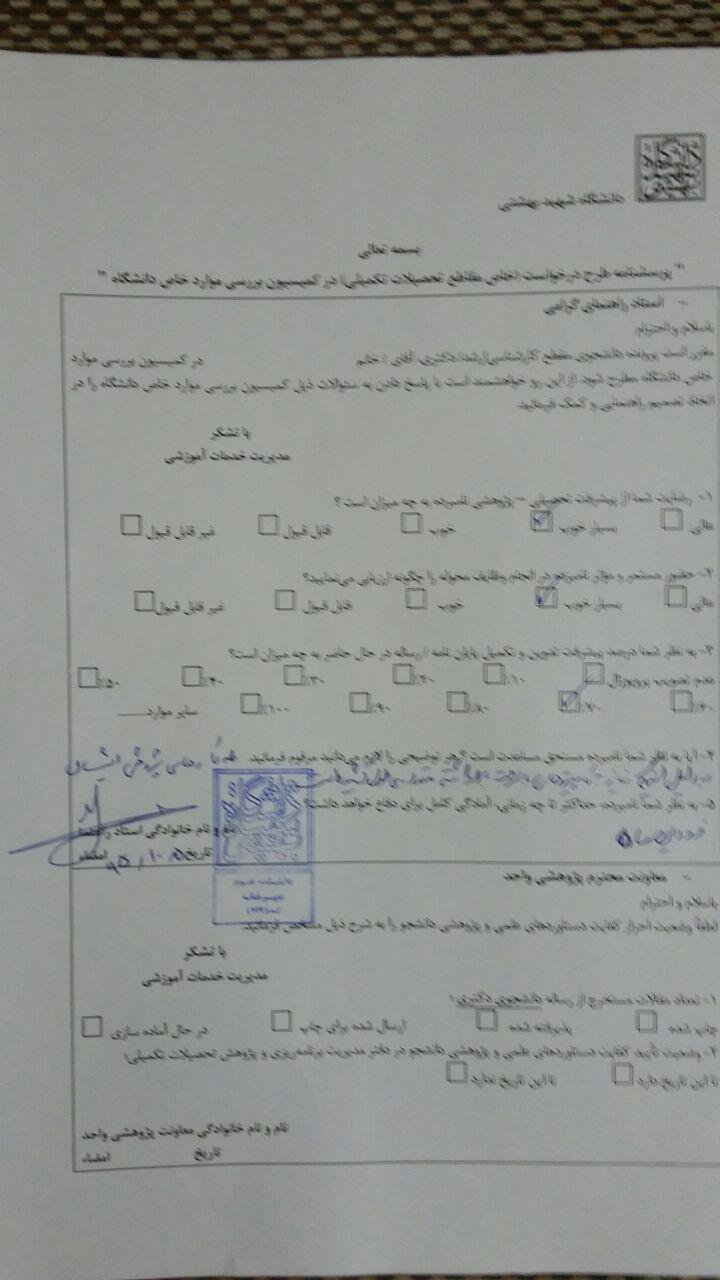 دانشگاه شهید بهشتی
بسمه تعالی
" پرسشنامه طرح درخواست (خاص مقاطع تحصیلات تکمیلی) در کمیسیون بررسی موارد خاص دانشگاه "
- استاد راهنمای گرامی
باسلام و احترام
مقرر است پرونده دانشجوی مقطع کارشناسی‌ارشد/دکتری آقای / خانم در کمیسیون بررسی موارد
خاص دانشگاه مطرح شود. از این رو خواهشمند است با پاسخ دادن به سئوالات ذیل کمیسیون بررسی موارد خاص دانشگاه را در
اتخاذ تصمیم راهنمایی و کمک فرمائید.
با تشکر
مدیریت خدمات آموزشی
۱- رضایت شما از پیشرفت تحصیلی – پژوهشی نامبرده به چه میزان است ؟
عالی بسیار خوب خوب قابل قبول غیر قابل قبول
۲- حضور مستمر و مؤثر نامبرده در انجام وظایف محوله را چگونه ارزیابی می‌نمایید؟
عالی بسیار خوب خوب قابل قبول غیر قابل قبول
۳- به نظر شما درصد پیشرفت تدوین و تکمیل پایان نامه / رساله در حال حاضر به چه میزان است؟
عدم تصویب پروپوزال ۱۰٪ ۲۰٪ ۳۰٪ ۴۰٪ ۵۰٪
۶۰٪ ۷۰٪ ۸۰٪ ۹۰٪ ۱۰۰٪ سایر موارد
۴- آیا به نظر شما نامبرده مستحق مساعدت است؟ هر توضیحی را لازم می‌دانید مرقوم فرمائید.
۵- به نظر شما نامبرده حداکثر تا چه زمانی، آمادگی کامل برای دفاع خواهد داشت؟
نام و نام خانوادگی استاد راهنما
تاریخ امضاء
- معاونت محترم پژوهشی واحد
باسلام و احترام
لطفاً وضعیت احراز کفایت دستاوردهای علمی و پژوهشی دانشجو را به شرح ذیل مشخص فرمائید.
با تشکر
مدیریت خدمات آموزشی
۱- تعداد مقالات مستخرج از رساله دانشجوی دکتری :
چاپ شده پذیرفته شده ارسال شده برای چاپ در حال آماده سازی
۲- وضعیت تأیید کفایت دستاوردهای علمی و پژوهشی دانشجو در دفتر مدیریت برنامه‌ریزی و پژوهش تحصیلات تکمیلی:
تا این تاریخ دارد تا این تاریخ ندارد
نام و نام خانوادگی معاونت پژوهشی واحد
تاریخ امضاء